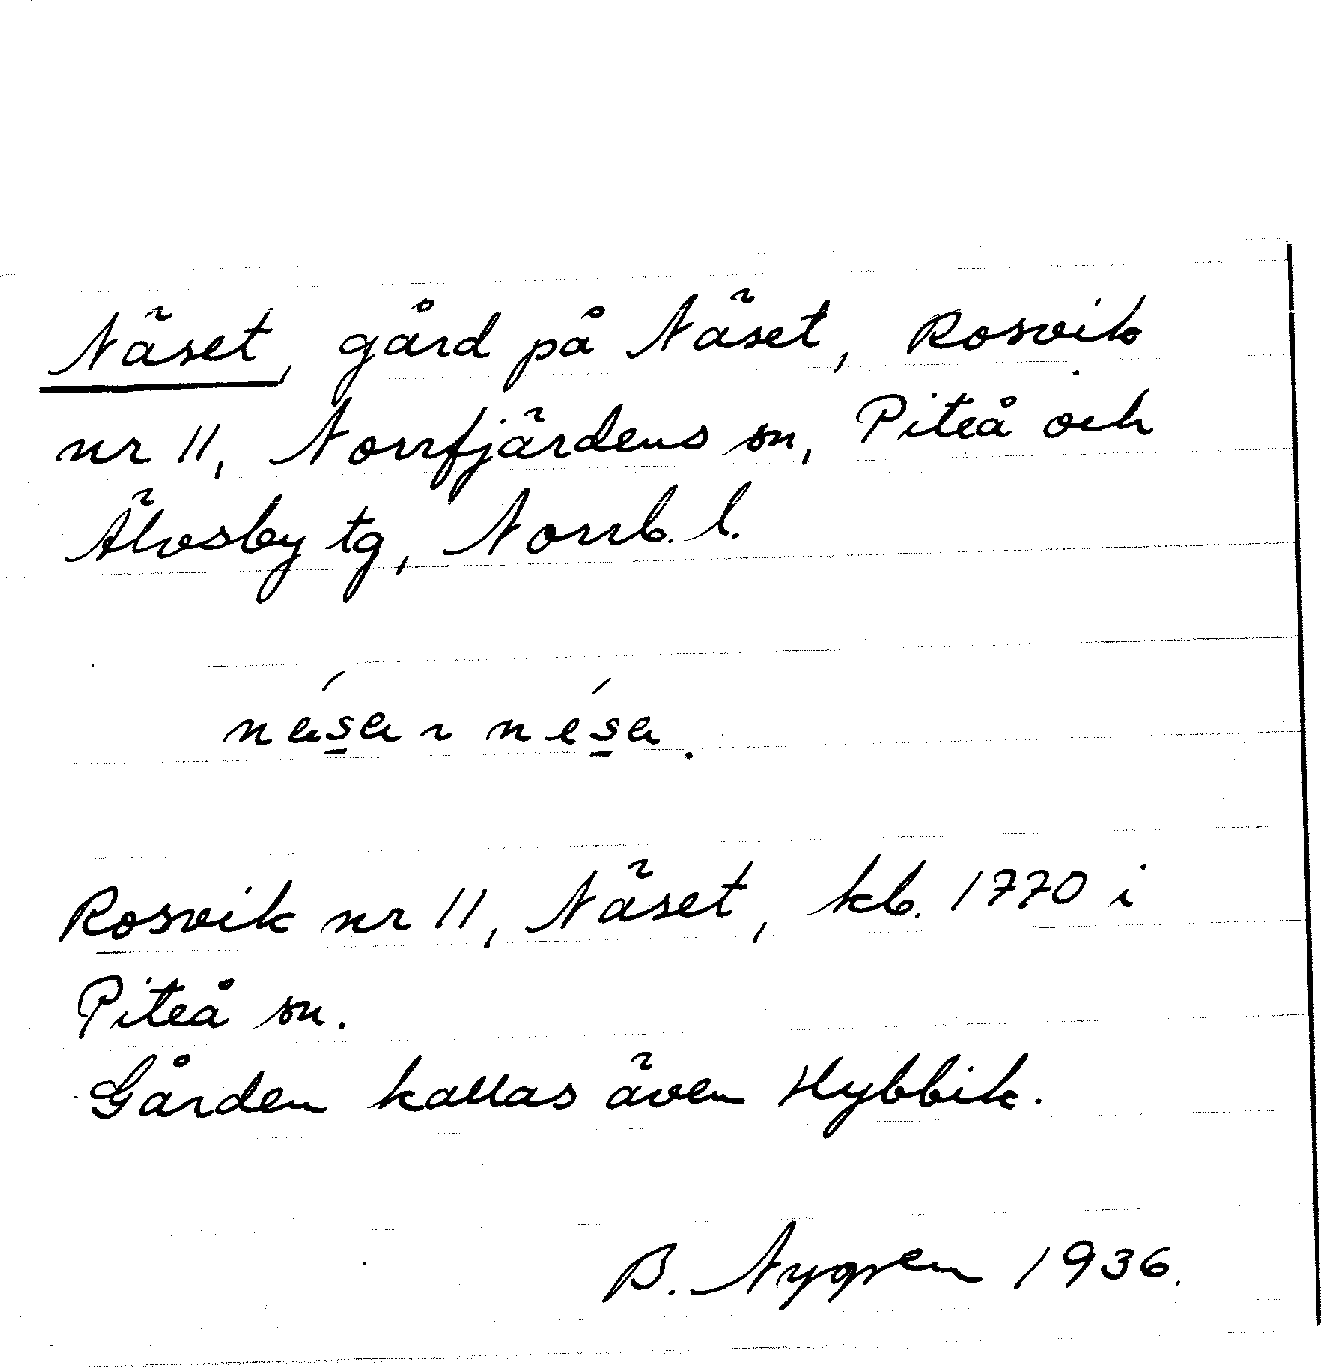 Näset, gård på Näset, Rosvik
nr 11, Norrfjärdens sn, Piteå och
Älvsby tg, Norrb. l.
Rosvik nr 11, Näset, kb. 1770 i
Piteå sn.
Gården kallas även Hybbik.
B. Nygren 1936.